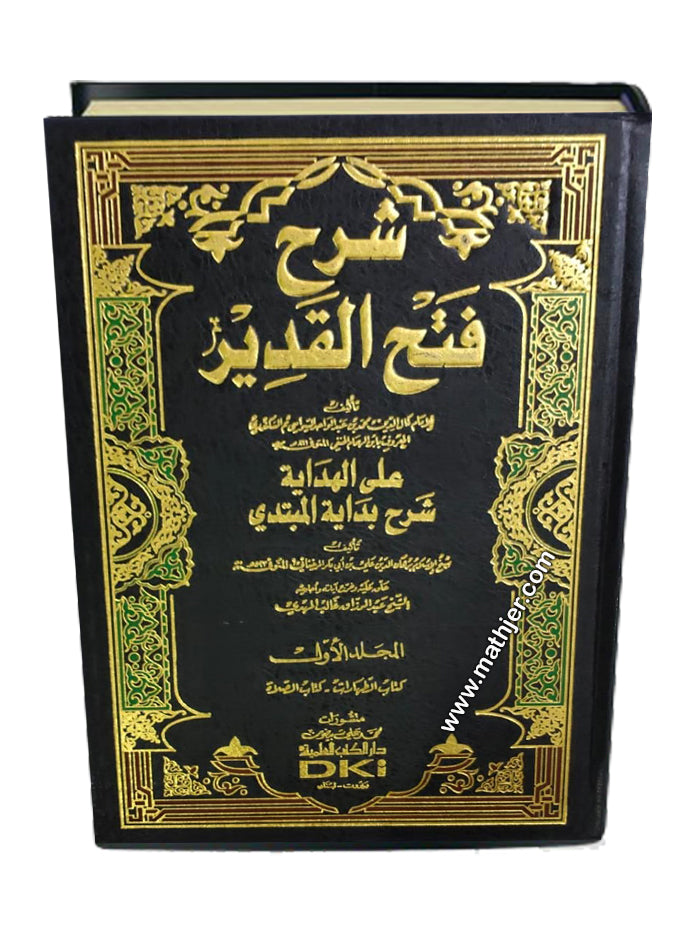 شرح
فَتْح القَدِيْر
تأليف
الإمام كمال الدين محمد بن عبد الواحد السيواسي ثم السكندري
المعروف بابن الهمام الحنفي المتوفى سنة ٨٦١هـ
على الهداية
شرح بداية المبتدي
تأليف
شيخ الإسلام برهان الدين علي بن أبي بكر المرغيناني المتوفى ٥٩٣هـ
علق عليه وخرج آياته وأحاديثه
الشيخ عبد الرزاق غالب المهدي
المجلد الأول
كتاب الطهارات - كتاب الصلاة
منشورات
محمد علي بيضون
دار الكتب العلمية
DKi
بيروت - لبنان
www.mathjer.com